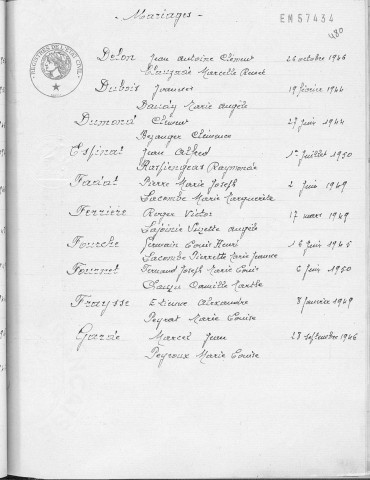 - Mariages -
EM57434
480
REGISTRES DE L'ETAT CIVIL
Delon Jean Antoine Clément 26 octobre 1946
Marcelle
Dubois 19 février 1944
Marie Angèle
Dumond Clément 27 juin 1944
Bejanger Clémence
Espinat Jean Alfred 1er juillet 1950
Raymonde
Fariat Pierre Marie Joseph 2 juin 1949
Lacombe Marie Marguerite
Ferrière Roger Victor 17 mars 1949
Angèle
Fourche Germain Louis Henri 16 juin 1945
Lacombe Pierrette Marie Jeanne
Fournet Fernand Joseph Marie Louis 6 juin 1950
Camille Marthe
Fraysse Etienne Alexandre 8 janvier 1949
Peyrat Marie Louise
Garde Marcel Jean 28 septembre 1946
Peyroux Marie Louise